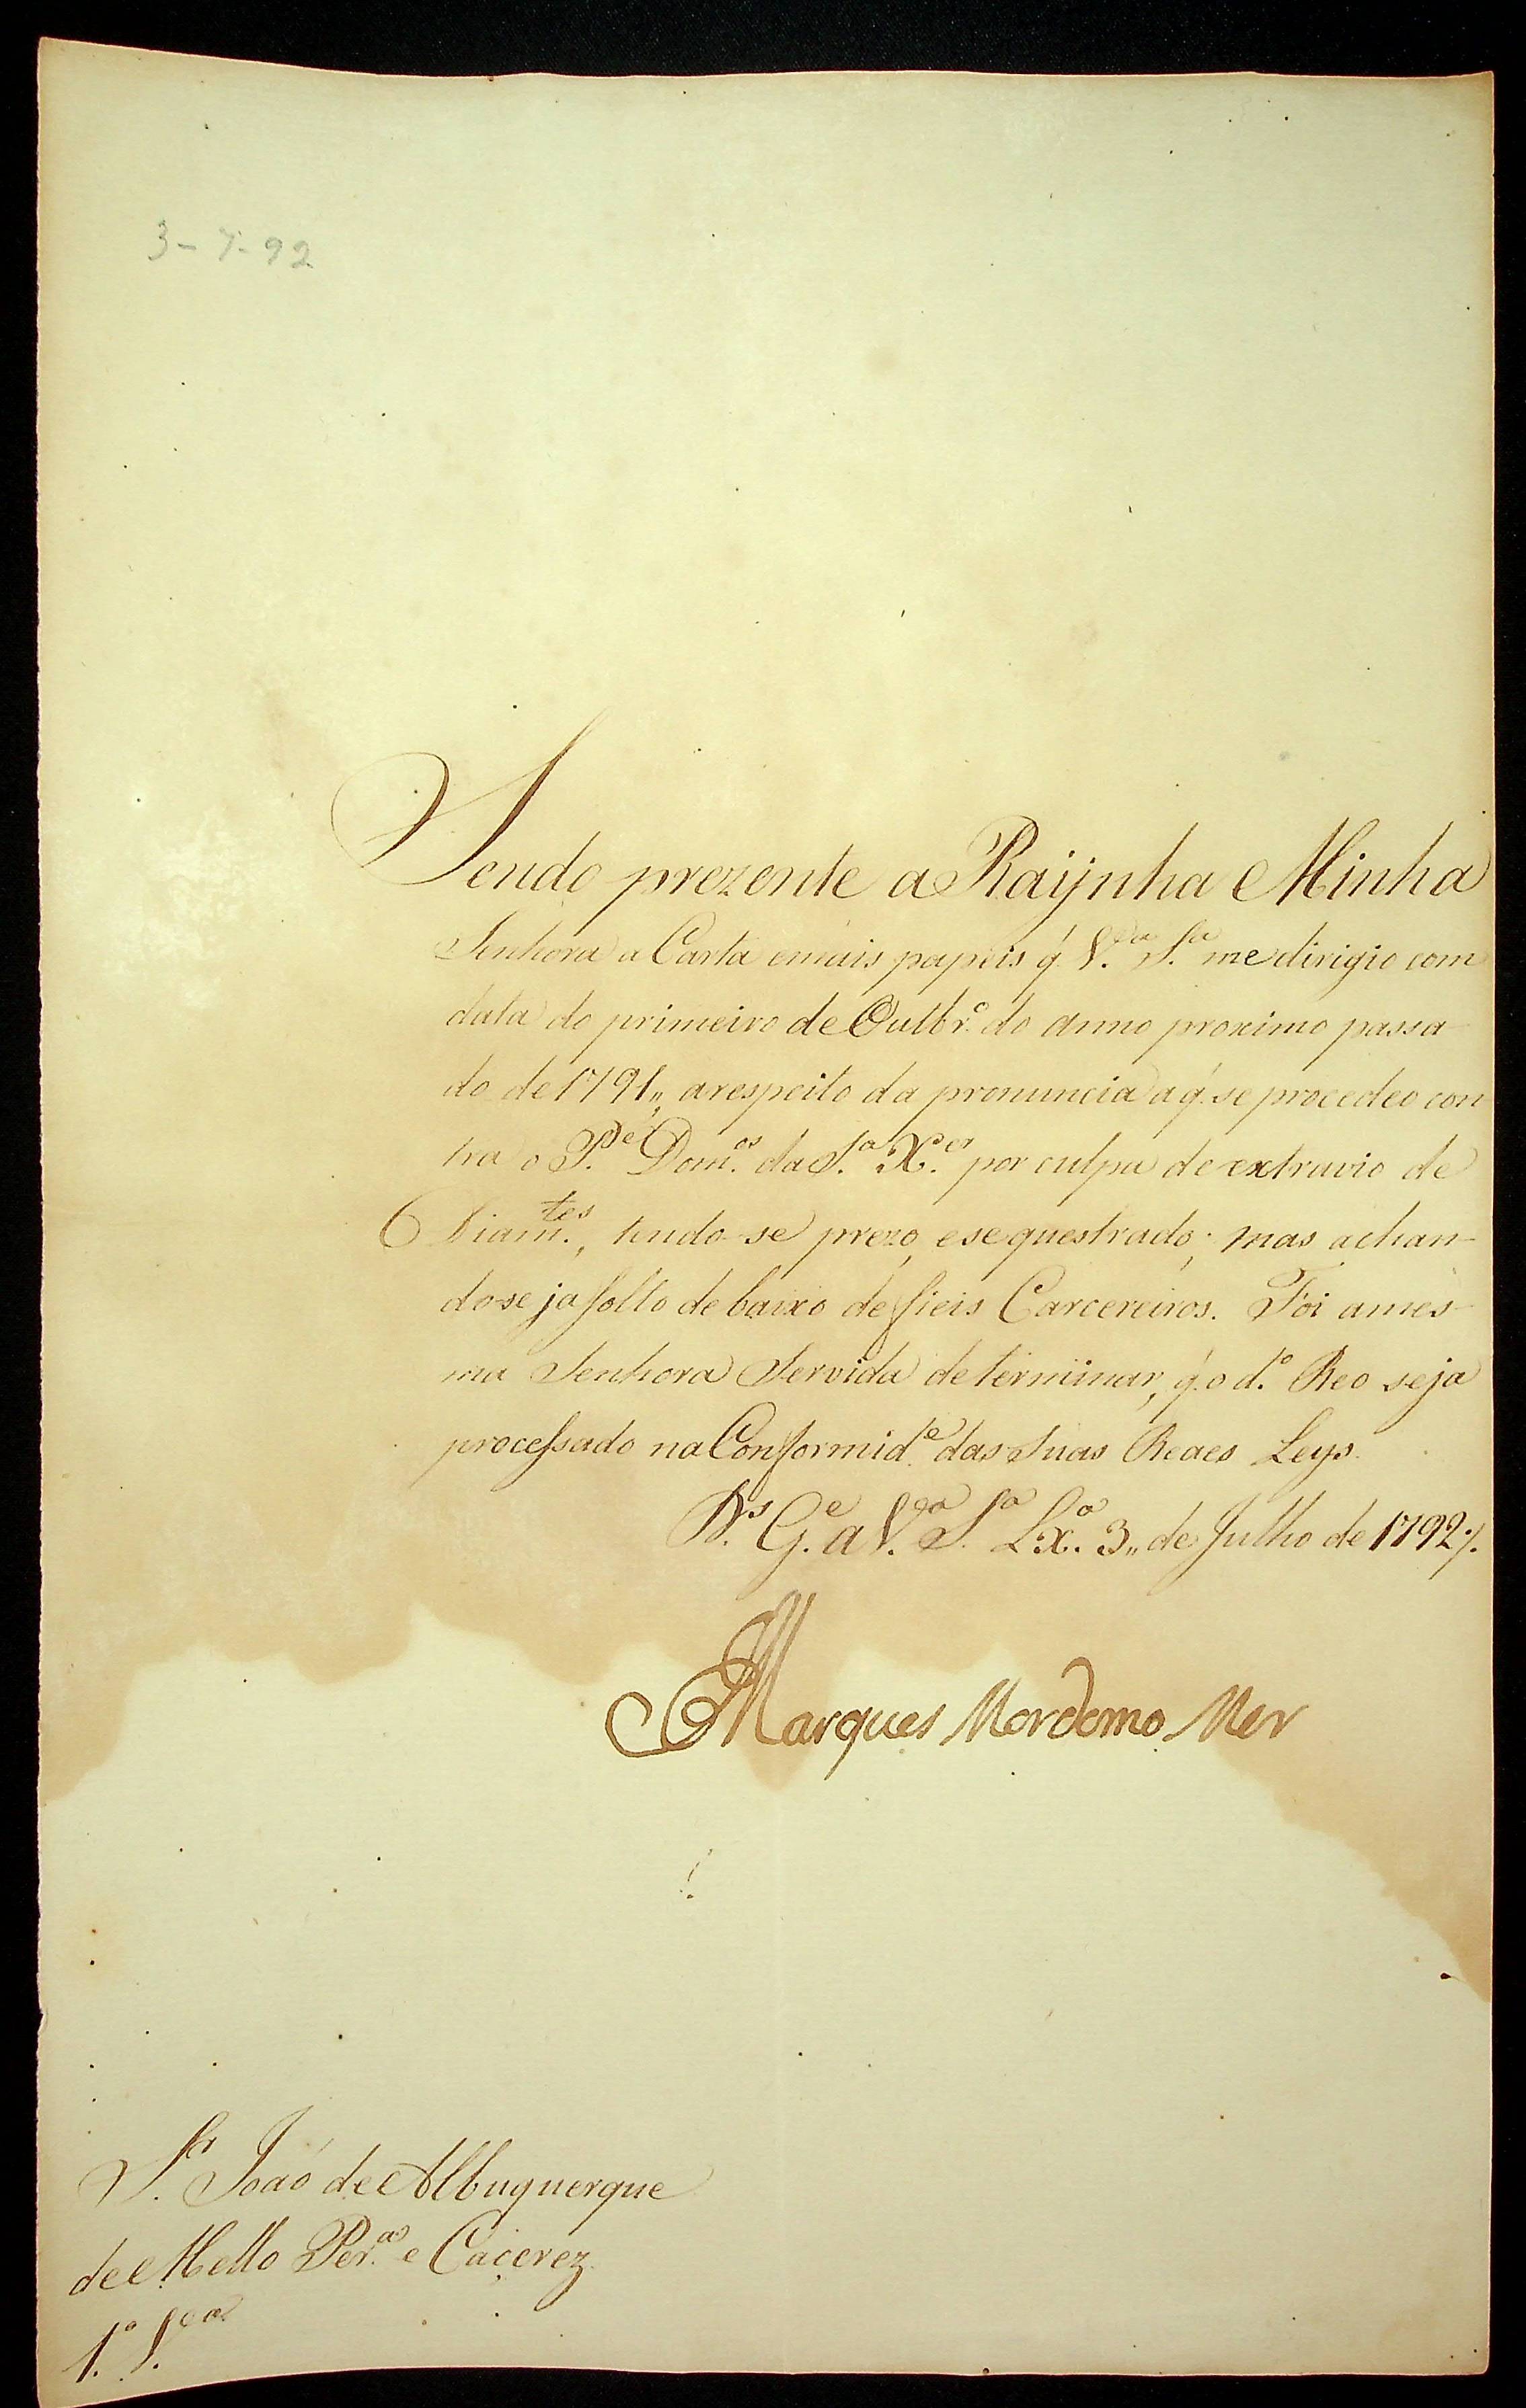 3-7-92
Sendo prezente a Raÿnha Minha
Senhora a Carta emais papeis q̃ V.ª S.ª me dirigio com
data do primeiro de Outbr.º do anno proximo passa
do de 1791,, arespeito da pronuncia a q̃ se procedeo con
tra o P.e Dom.os da S.ª X.er por culpa de extravio de
Diam.tes, tendo-se prezo, esequestrado; mas achan-
do-se ja solto de baixo de fieis Carcereiros. Foi ames-
ma Senhora Servida determinar, q̃ o d.º Reo seja
processado na Conformid.e das Suas Reaes Leys.
D.s G.e a V.ª S.ª Lx.ª 3,, de Julho de 1792 /.
Marques Mordomo Mor
S.r Joaõ de Albuquerque
de Mello Per.as e Caçerez